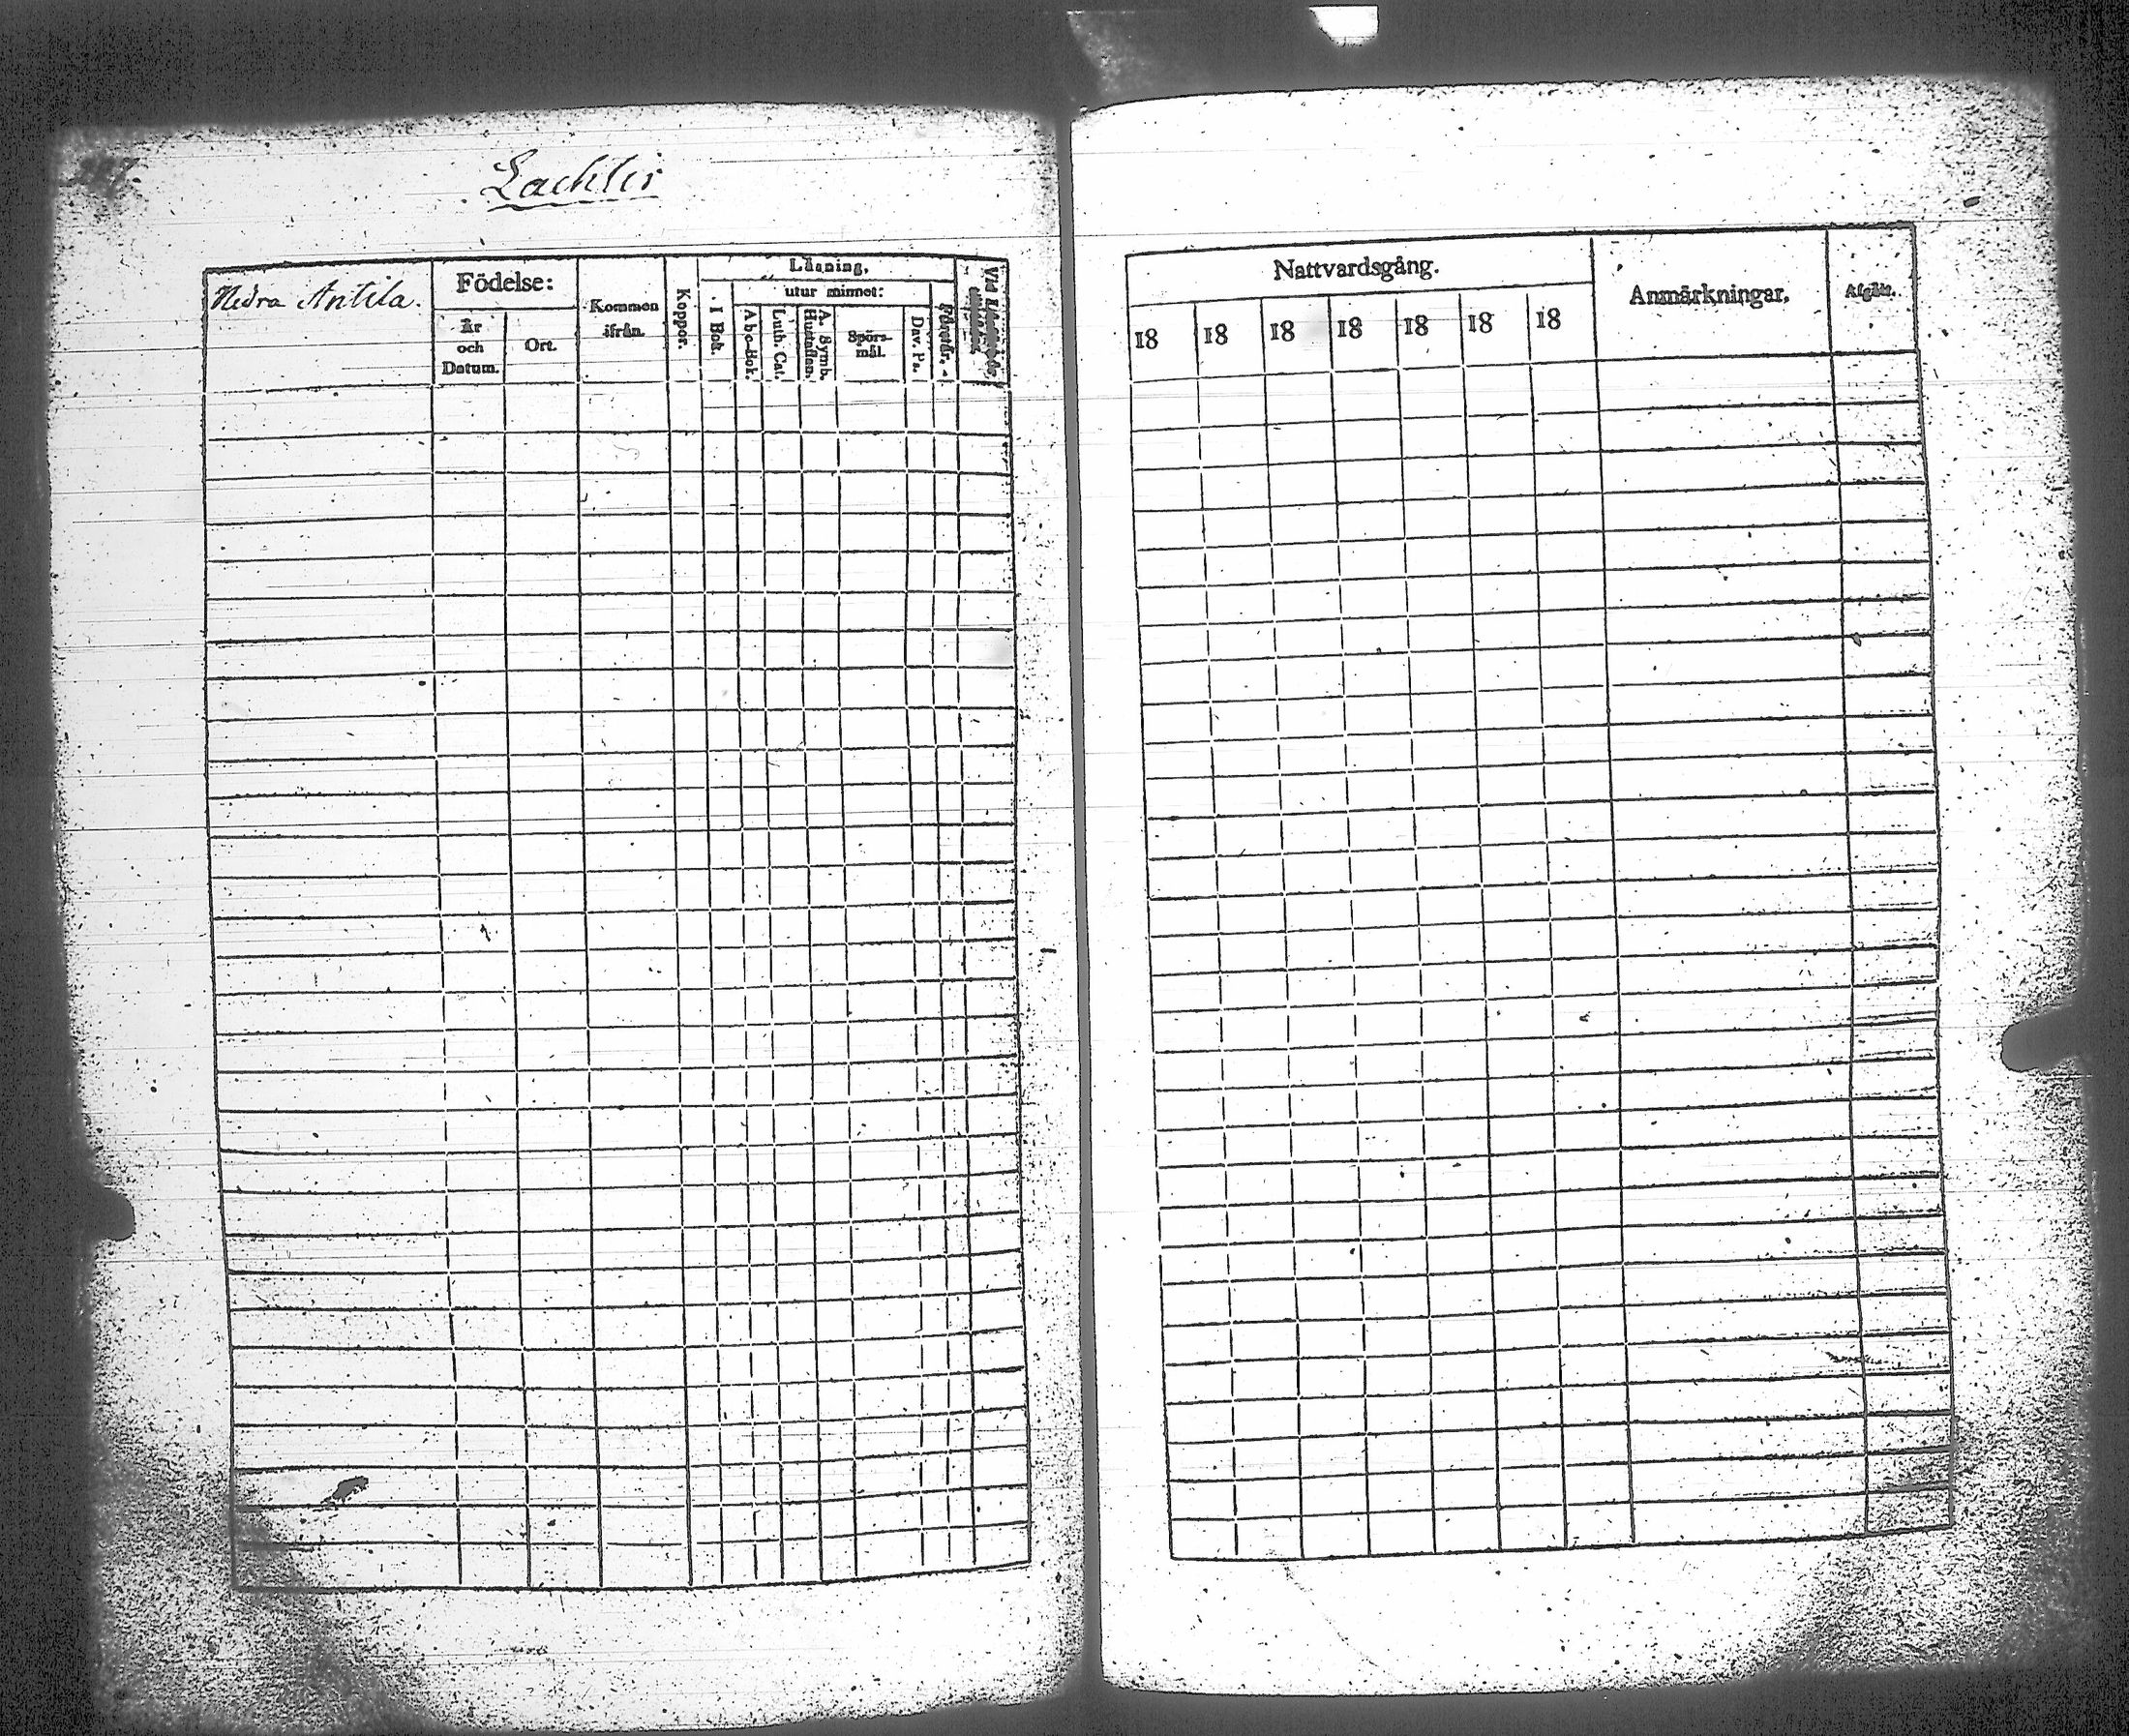 Lachlis
Nedra Anttila.
Födelse:
År
och
Datum.
Ort.
Kommen
ifrån.
Koppor.
Läsning,
I Bok.
utur minnet:
Abc-Bok.
Luth. Cat.
A. Symb.
Hustaflan.
Spörs-
mål.
Dav. Ps.
Förstår.
Nattvardsgång.
18 18 18 18 18 18 18
Anmärkningar.
Afgått.